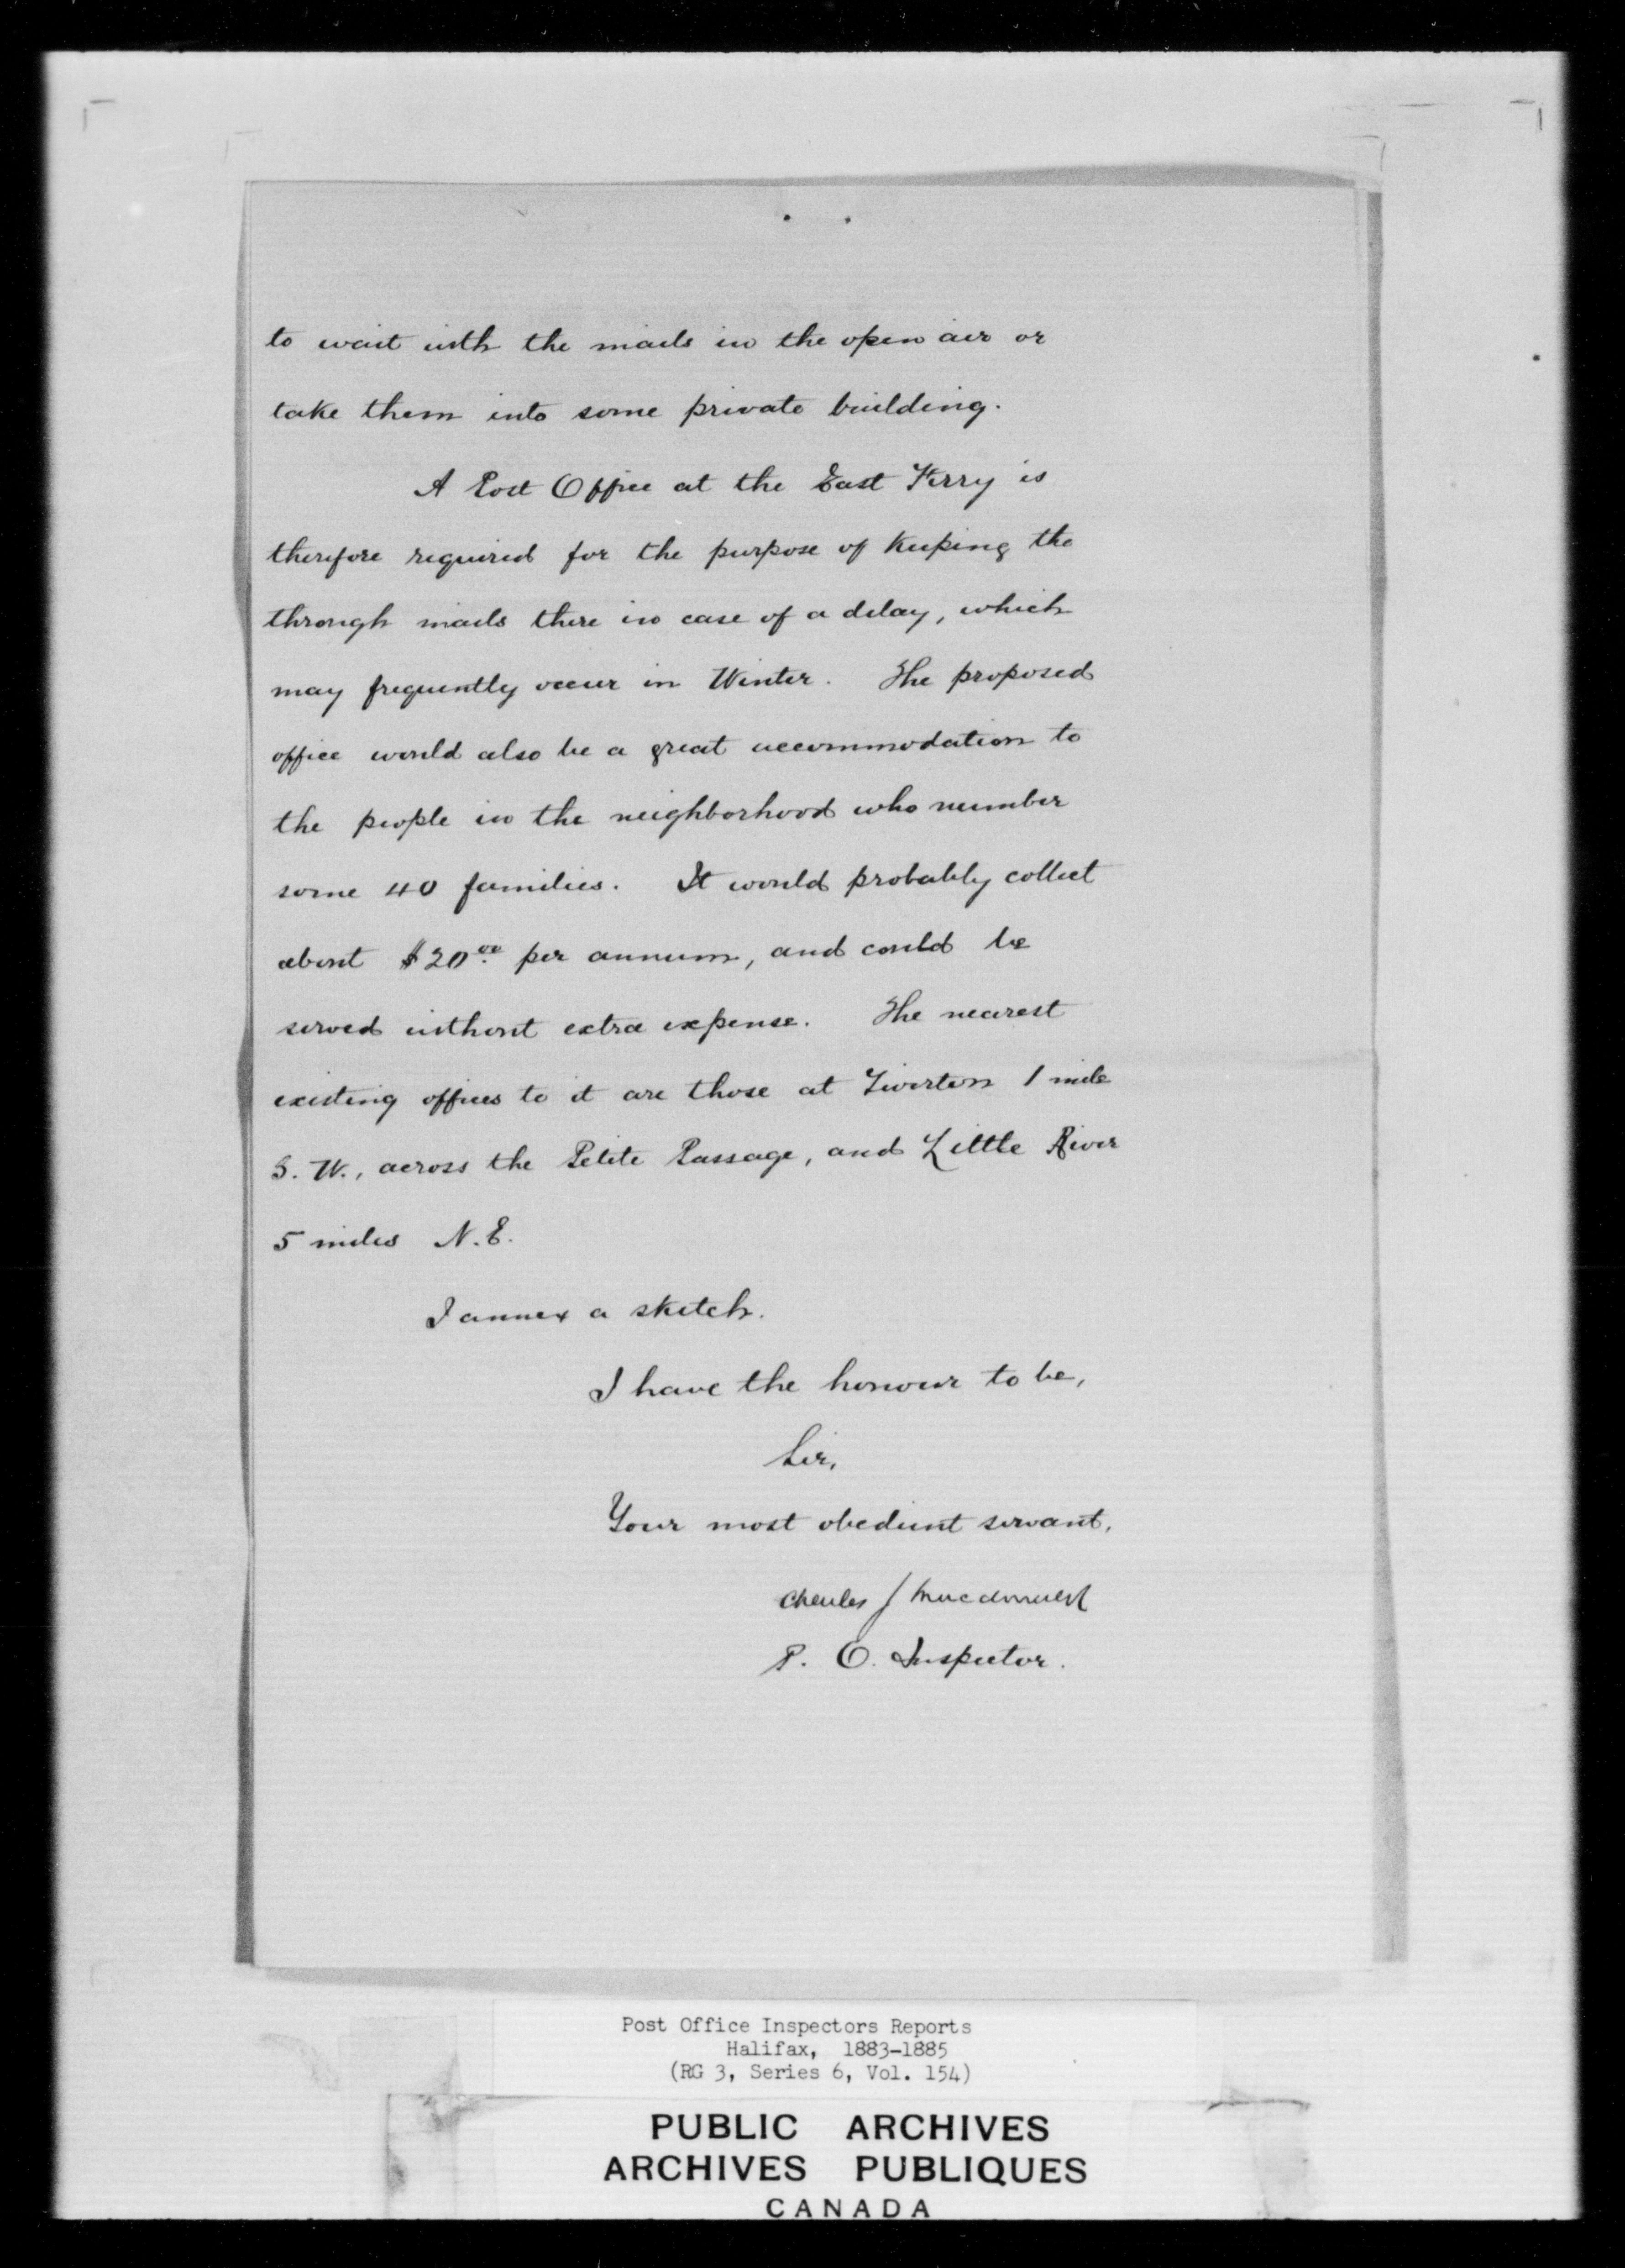 to wait with the mails in the open air or
take them into some private building.
A Post Office at the East Ferry is
therefore required for the purpose of keeping the
through mails there in case of a delay, which
may frequently occur in Winter. The proposed
office would also be a great accommodation to
the people in the neighborhood who number
some 40 families. It would probably collect
about $20.00 per annum, and could be
served without extra expense. The nearest
existing offices to it are those at Tiverton 1 mile
S. W., across the Petite Passage, and Little River
5 miles N. E.
I annex a sketch.
I have the honour to be,
Sir,
Your most obedient servant,
Charles J Macdonald
P. O. Inspector.
Post Office Inspectors Reports
Halifax, 1883-1885
(RG 3, Series 6, Vol. 154)
PUBLIC ARCHIVES
ARCHIVES PUBLIQUES
CANADA